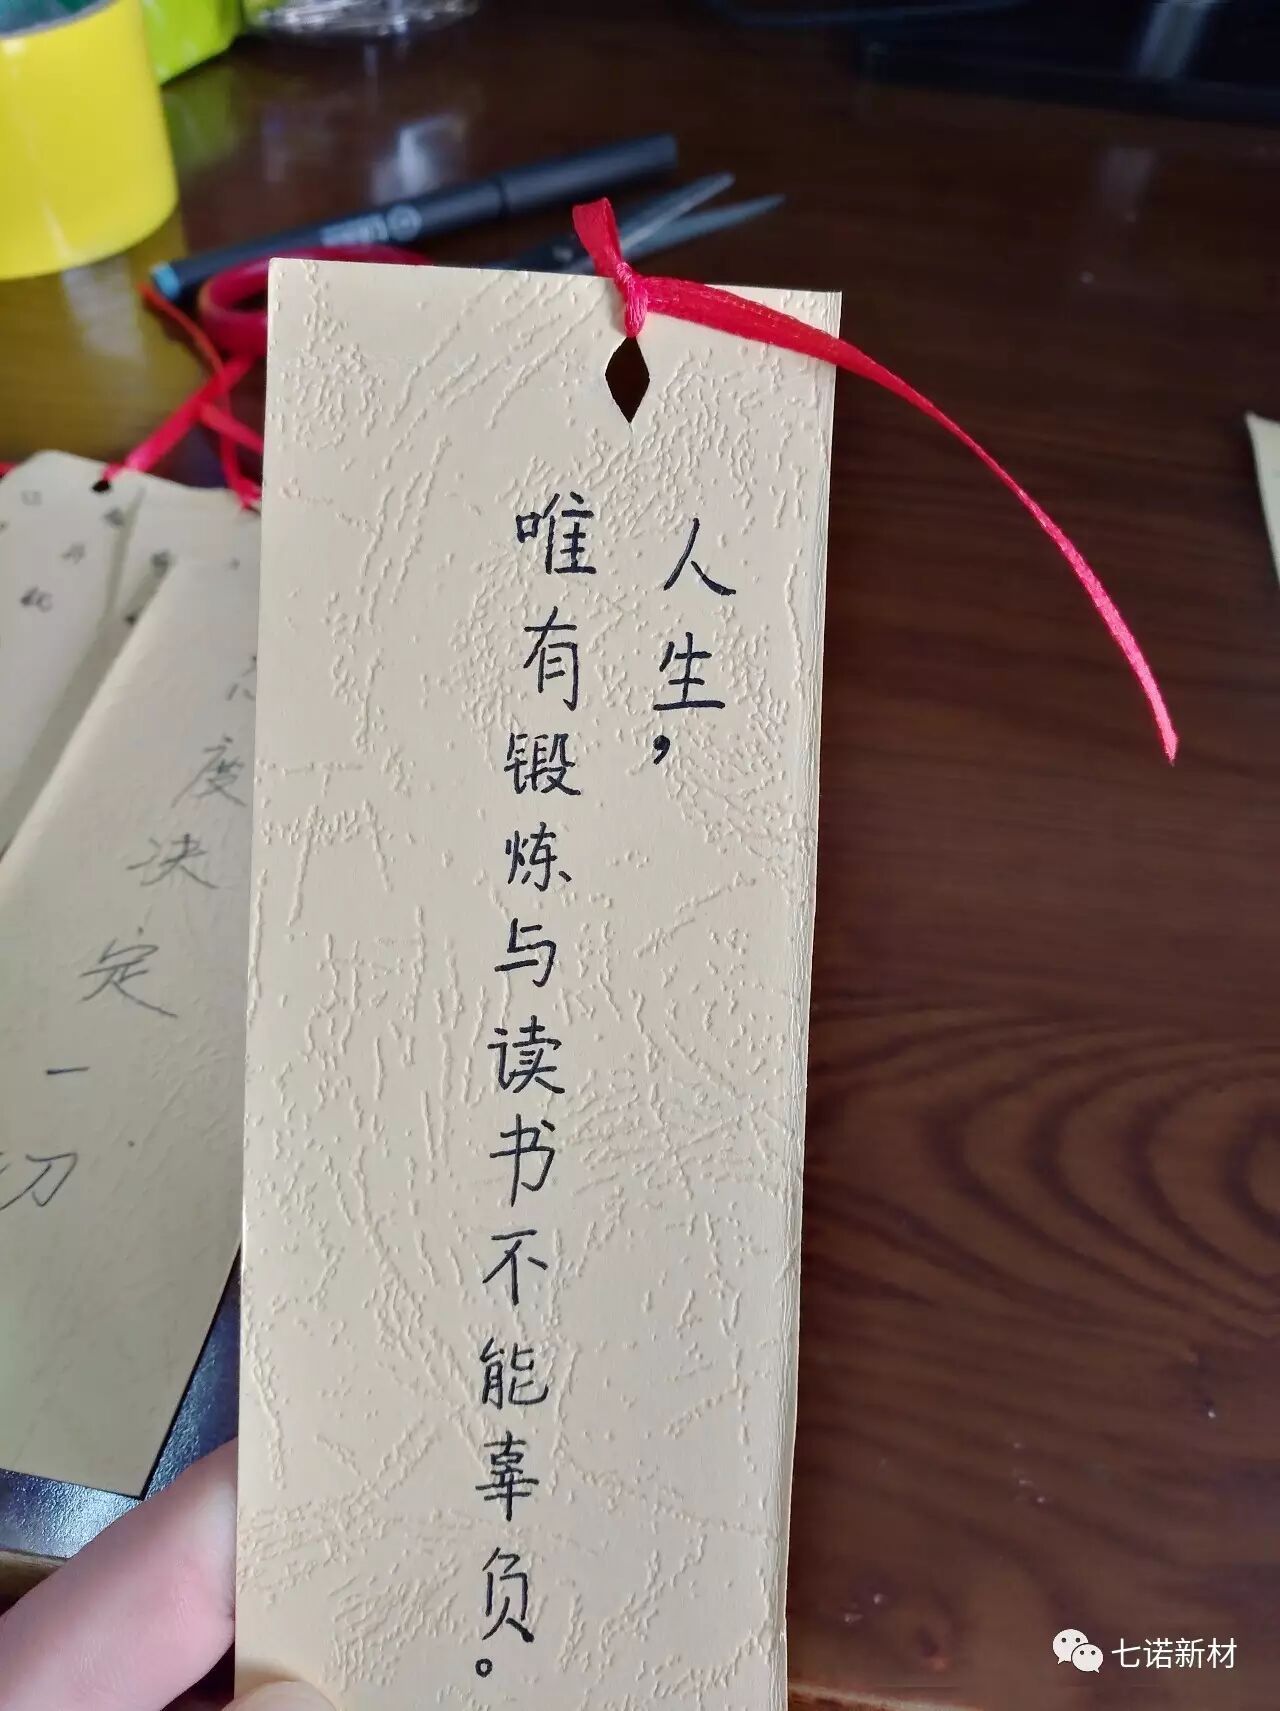 人生，
唯有锻炼与读书不能辜负。
度决定一切
七诺新材